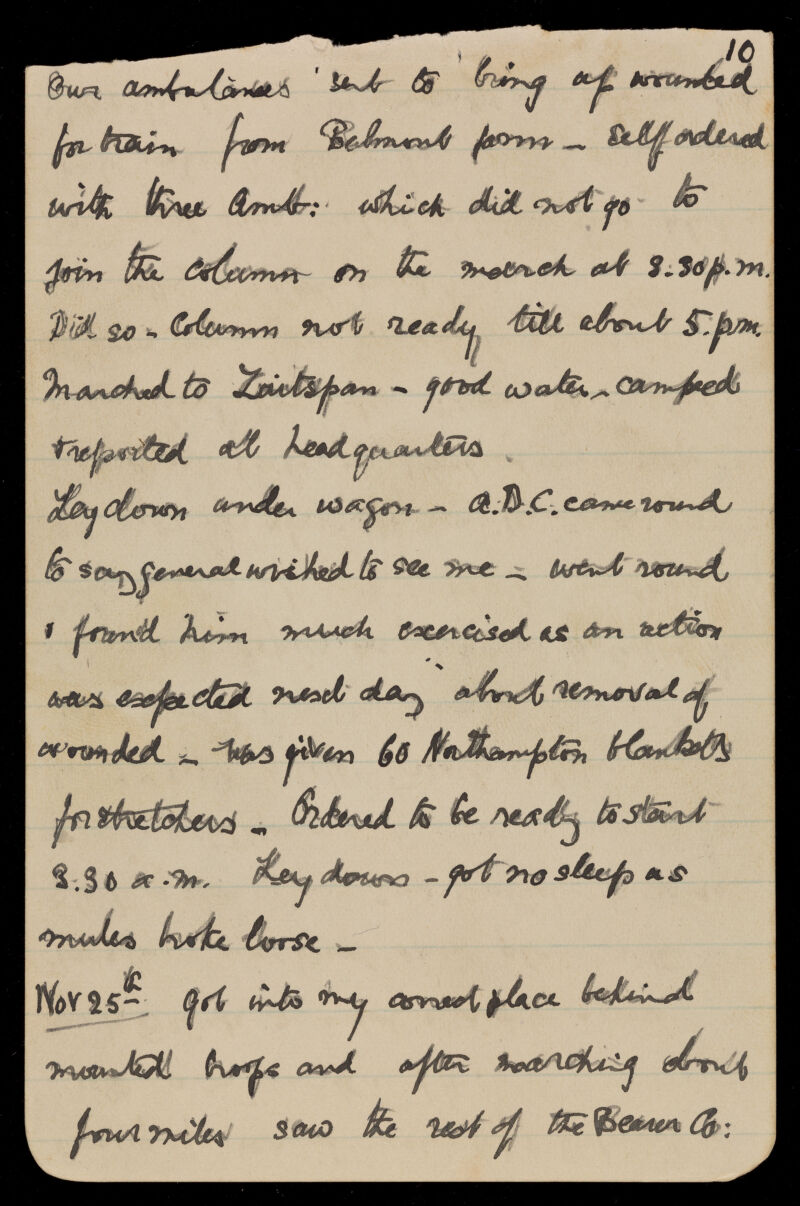 10
Our ambulances sent to bring up wounded
for train from Belmont farm – self ordered
with three Amb: which did not go to
join the column on the march at 3.30 p.m.
Did so – Column not ready till about 5.p.m.
Marched to Zwitspan – good water – camped
& reported at headquarters.
Lay down under wagon – A.D.C. came round
to say general wished to see me – went round
& found him much exercised as an action
was expected next day about removal of
wounded – was given 60 Northampton blankets
for stretchers – Ordered to be ready to start
3.30 a.m. Lay down – got no sleep as
mules broke loose –
Nov 25th got into my correct place behind
mounted troops and after marching about
four miles saw the rest of the Bearer Co: